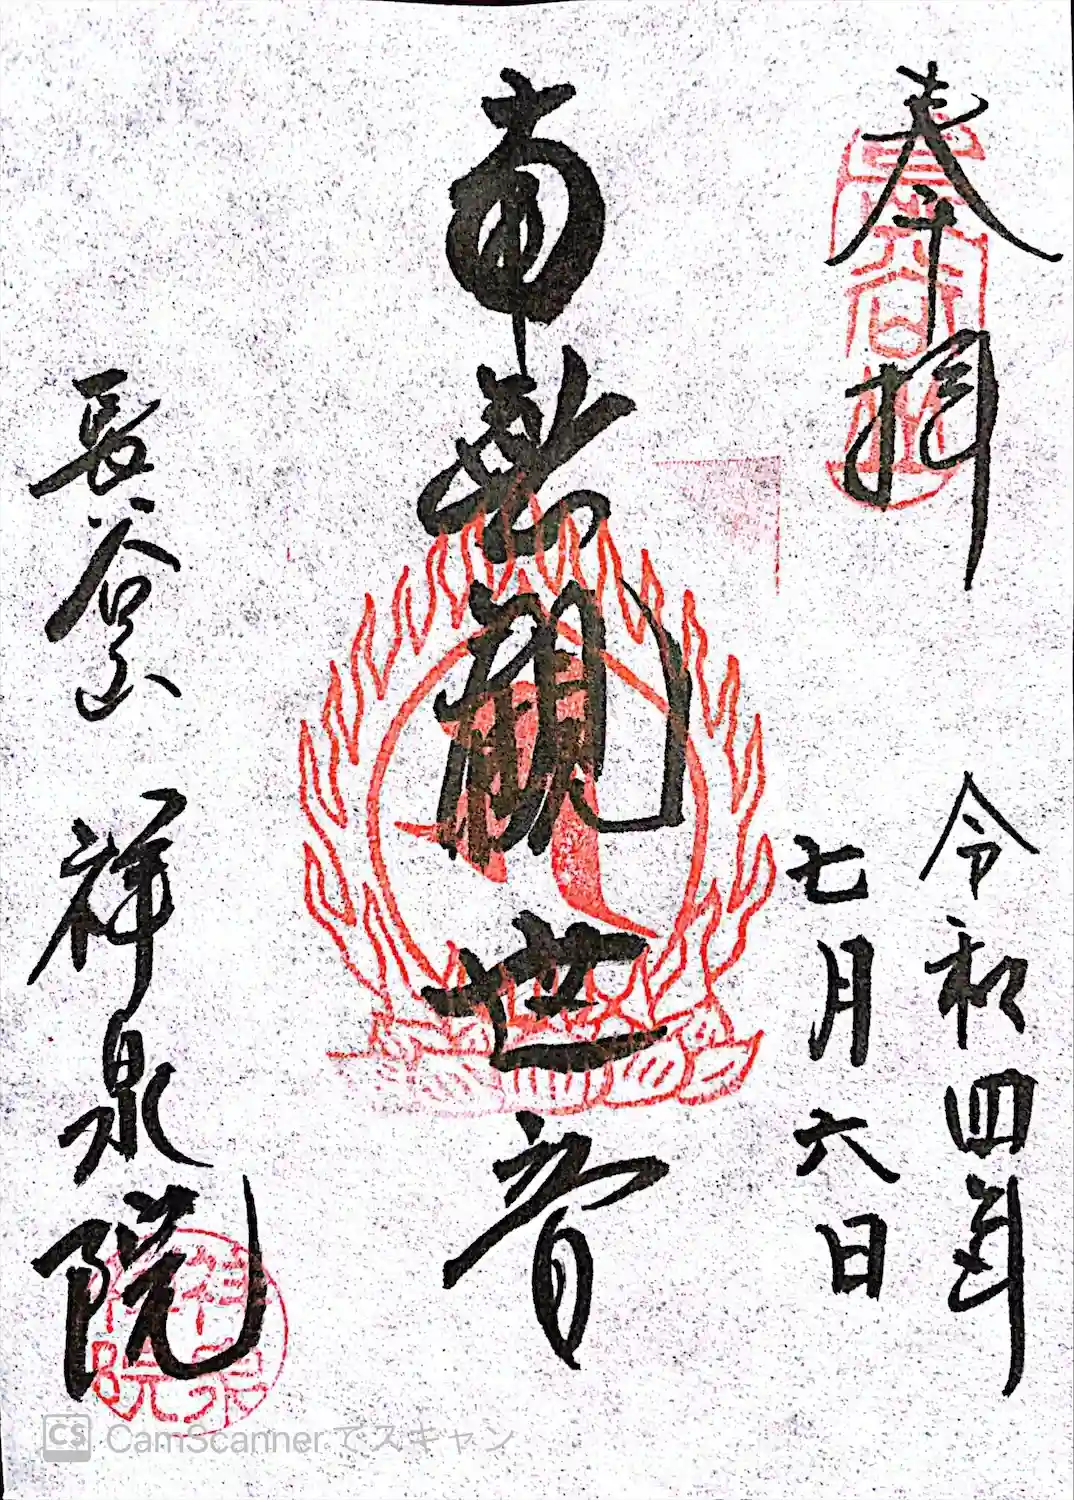 奉拝
長谷山
令和四年
七月六日
南無観世音
長谷山
祥泉院
祥泉院
CS CamScannerでスキャン